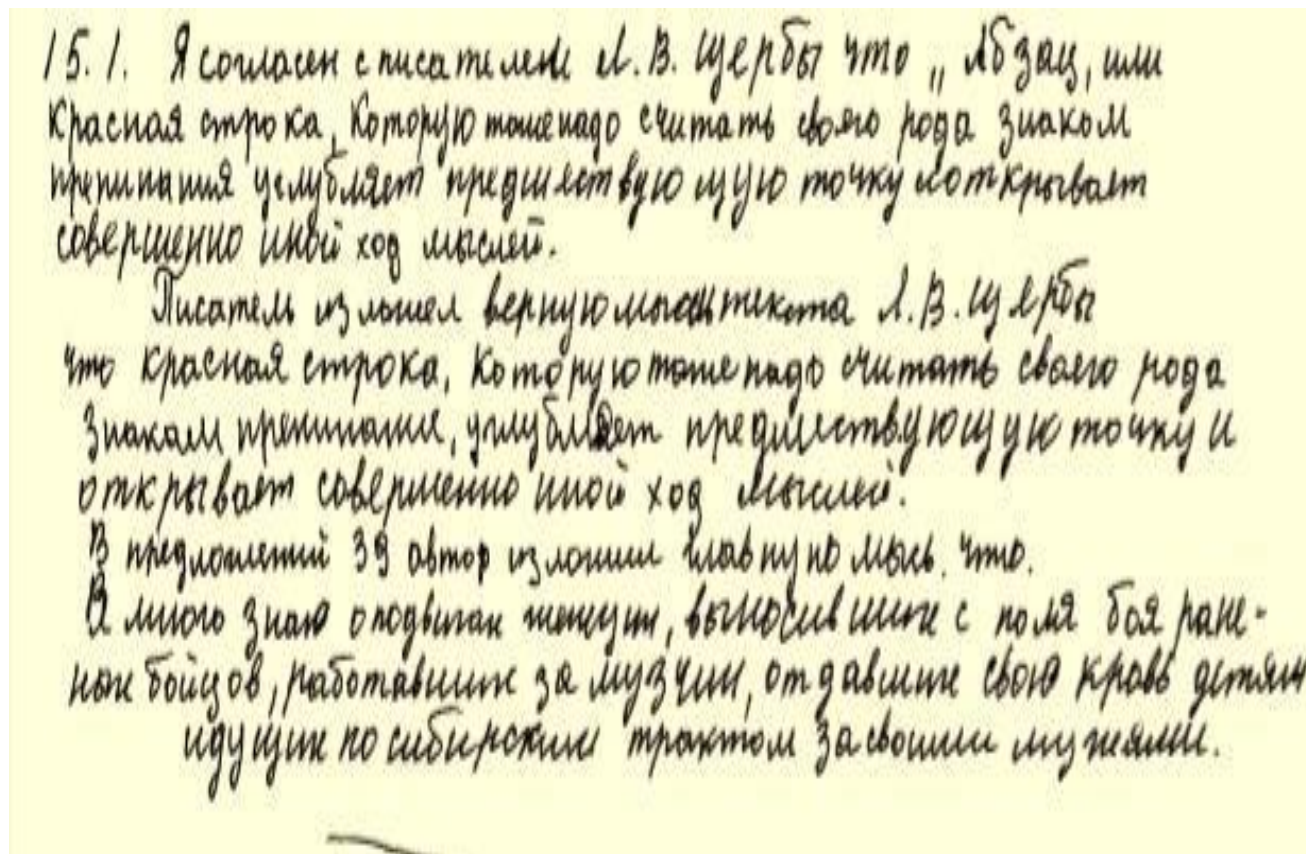 15.1. Я согласен с писателем Л.В. Щербы что „Абзац, или
Красная строка, Которую тоже надо считать своего рода знаком
препинания углубляет предшествующую точку и открывает
совершенно иной ход мыслей.
Писатель изложел верную мысль текста Л.В. Щербы
что красная строка, Которую тоже надо считать своего рода
Знакам препинание, углубляет предшествующую точку и
открывает совершенно иной ход мыслей.
В предложений 39 автор изложил главную мысь. что.
Я много знаю о подвигах женщин, выносивших с поля боя ране-
ных бойцов, работавших за музчин, отдавших свою кровь детям
идущих по сибирским трактом за своими мужьями.